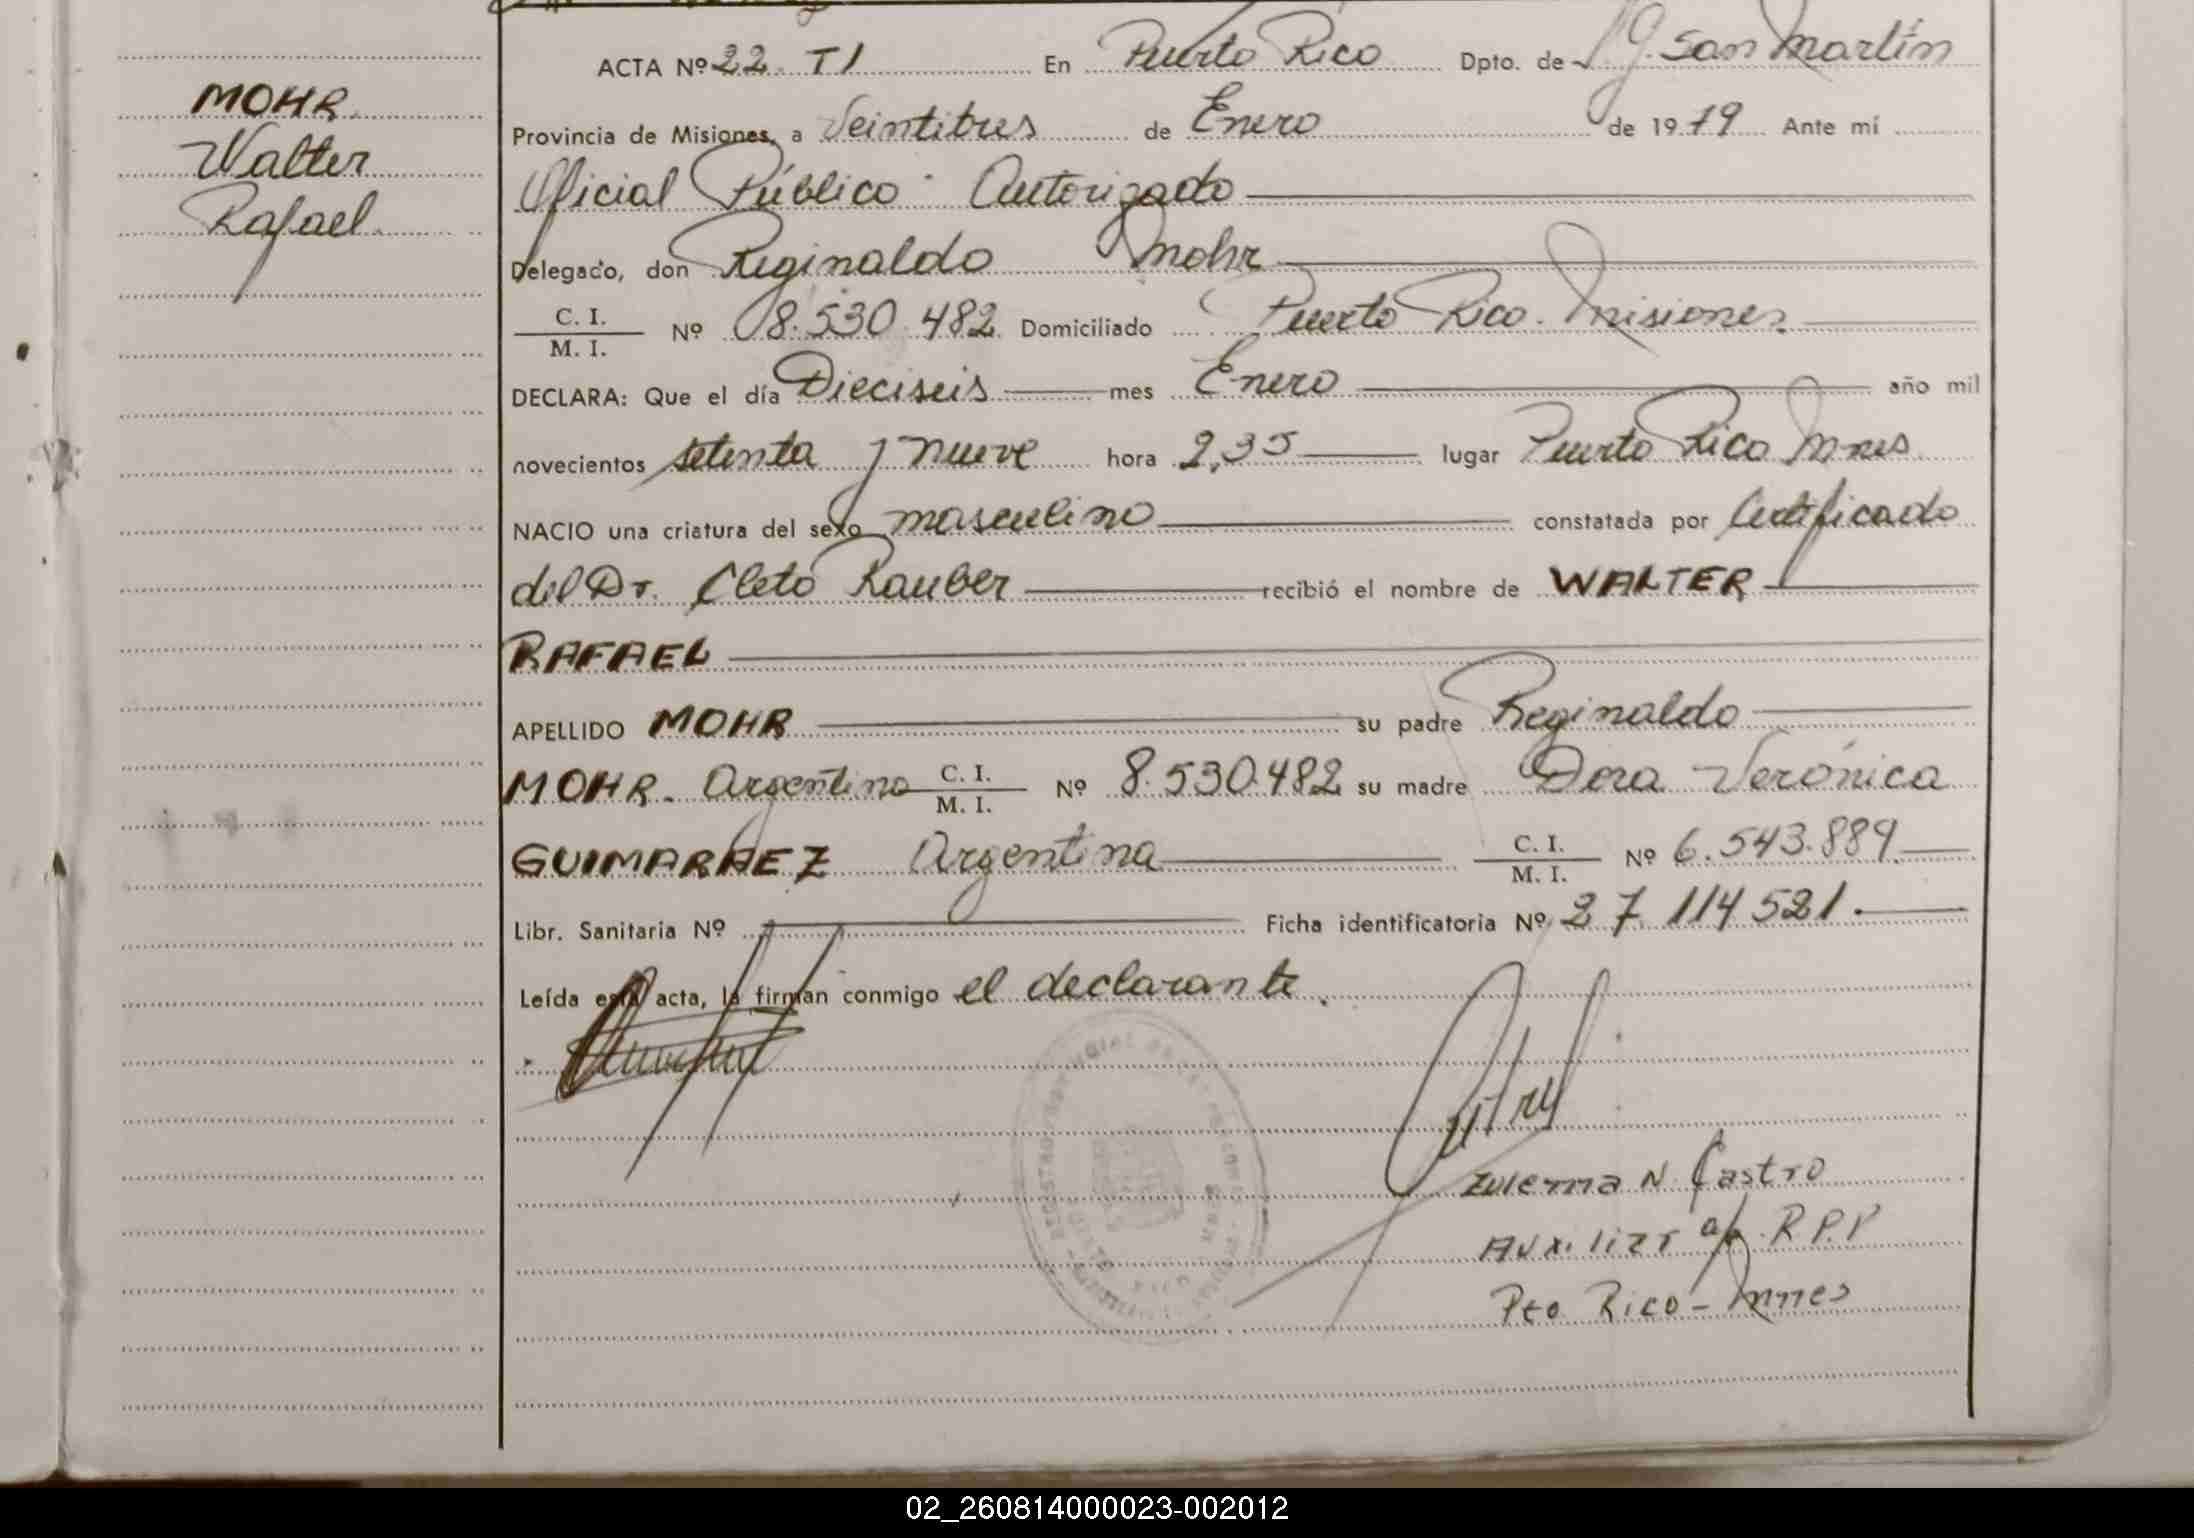 MOHR
Walter
Rafael
ACTA Nº 22 TI En Puerto Rico Dpto. de L. G. San Martín
Provincia de Misiones, a Veintitres de Enero de 1979 Ante mí
Oficial Público Autorizado
Delegado, don Reginaldo Mohr
C. I. / M. I. Nº 8.530.482 Domiciliado Puerto Rico. Misiones
DECLARA: Que el día Dieciseis mes Enero año mil
novecientos setenta y nueve hora 2,35 lugar Puerto Rico Mnes
NACIO una criatura del sexo masculino constatada por Certificado
del Dr. Cleto Rauber recibió el nombre de WALTER
RAFAEL
APELLIDO MOHR su padre Reginaldo
MOHR. Argentino C. I. / M. I. Nº 8.530.482 su madre Dora Verónica
GUIMARAEZ Argentina C. I. / M. I. Nº 6.543.889
Libr. Sanitaria Nº Ficha identificatoria Nº 27.114.521.
Leída esta acta, la firman conmigo el declarante.
Zulema N. Castro
Auxiliar a/c R.P.P
Pto Rico - Mnes
02_260814000023-002012